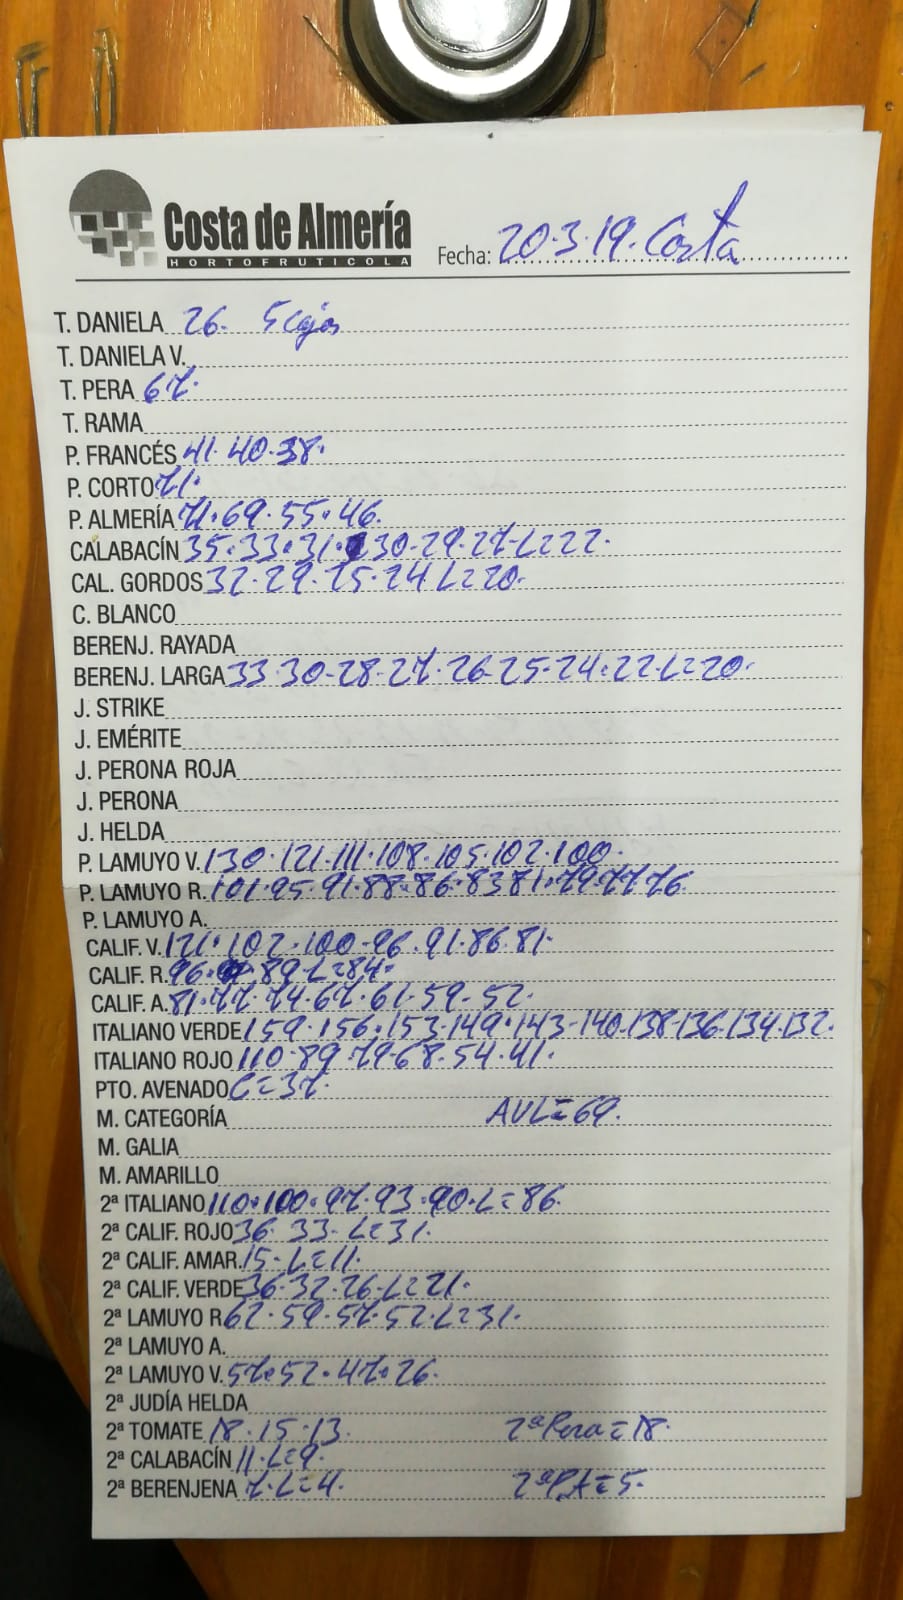 Costa de Almería
HORTOFRUTICOLA
Fecha: 20.3.19. Costa
T. DANIELA 26. 5 cajas
T. DANIELA V.
T. PERA 67.
T. RAMA
P. FRANCÉS 41.40.38.
P. CORTO 71.
P. ALMERÍA 71.69.55.46.
CALABACÍN 35.33.31.30-29-27-L=22.
CAL. GORDOS 32-29-25-24 L=20.
C. BLANCO
BERENJ. RAYADA
BERENJ. LARGA 33 30-28-27-26-25-24.22 L=20.
J. STRIKE
J. EMÉRITE
J. PERONA ROJA
J. PERONA
J. HELDA
P. LAMUYO V. 130.121.111.108.105.102.100.
P. LAMUYO R. 101.95.91.88.86.83 81.79.77 76
P. LAMUYO A.
CALIF. V. 121.102.100-96.91.86.81.
CALIF. R. 96.89-L=84.
CALIF. A. 81.77.74-67.61-59-52.
ITALIANO VERDE 159.156.153-149.143-140-138-136-134-132.
ITALIANO ROJO 110-89.79-68.54-41.
PTO. AVENADO C=37.
M. CATEGORÍA AVL=69.
M. GALIA
M. AMARILLO
2ª ITALIANO 110.100.97.93.90.L=86.
2ª CALIF. ROJO 36.33-L=31.
2ª CALIF. AMAR. 15-L=11.
2ª CALIF. VERDE 36-32-26-L=21.
2ª LAMUYO R 62.59.57.52.L=31.
2ª LAMUYO A.
2ª LAMUYO V. 57.52.47.26.
2ª JUDÍA HELDA
2ª TOMATE 18.15.13. 2ª Pera=18.
2ª CALABACÍN 11.L=9.
2ª BERENJENA 7.L=4. 2ª P.A=5.